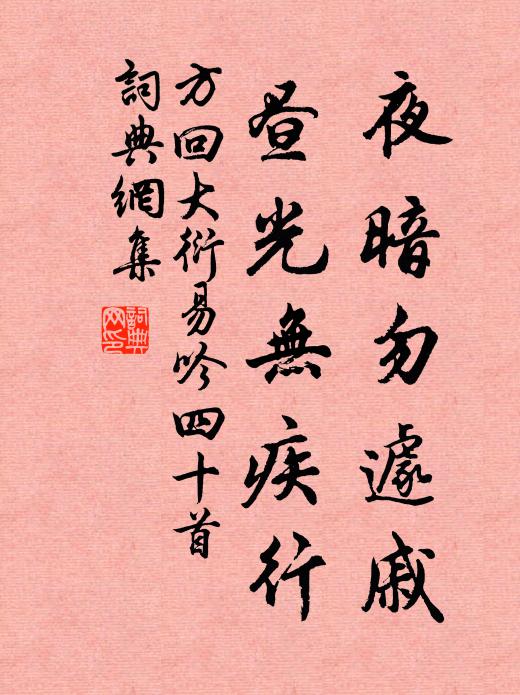 夜暗勿遽戚
昼光無疾行
方回大衍易吟四十首
詞典網集
詞典网印